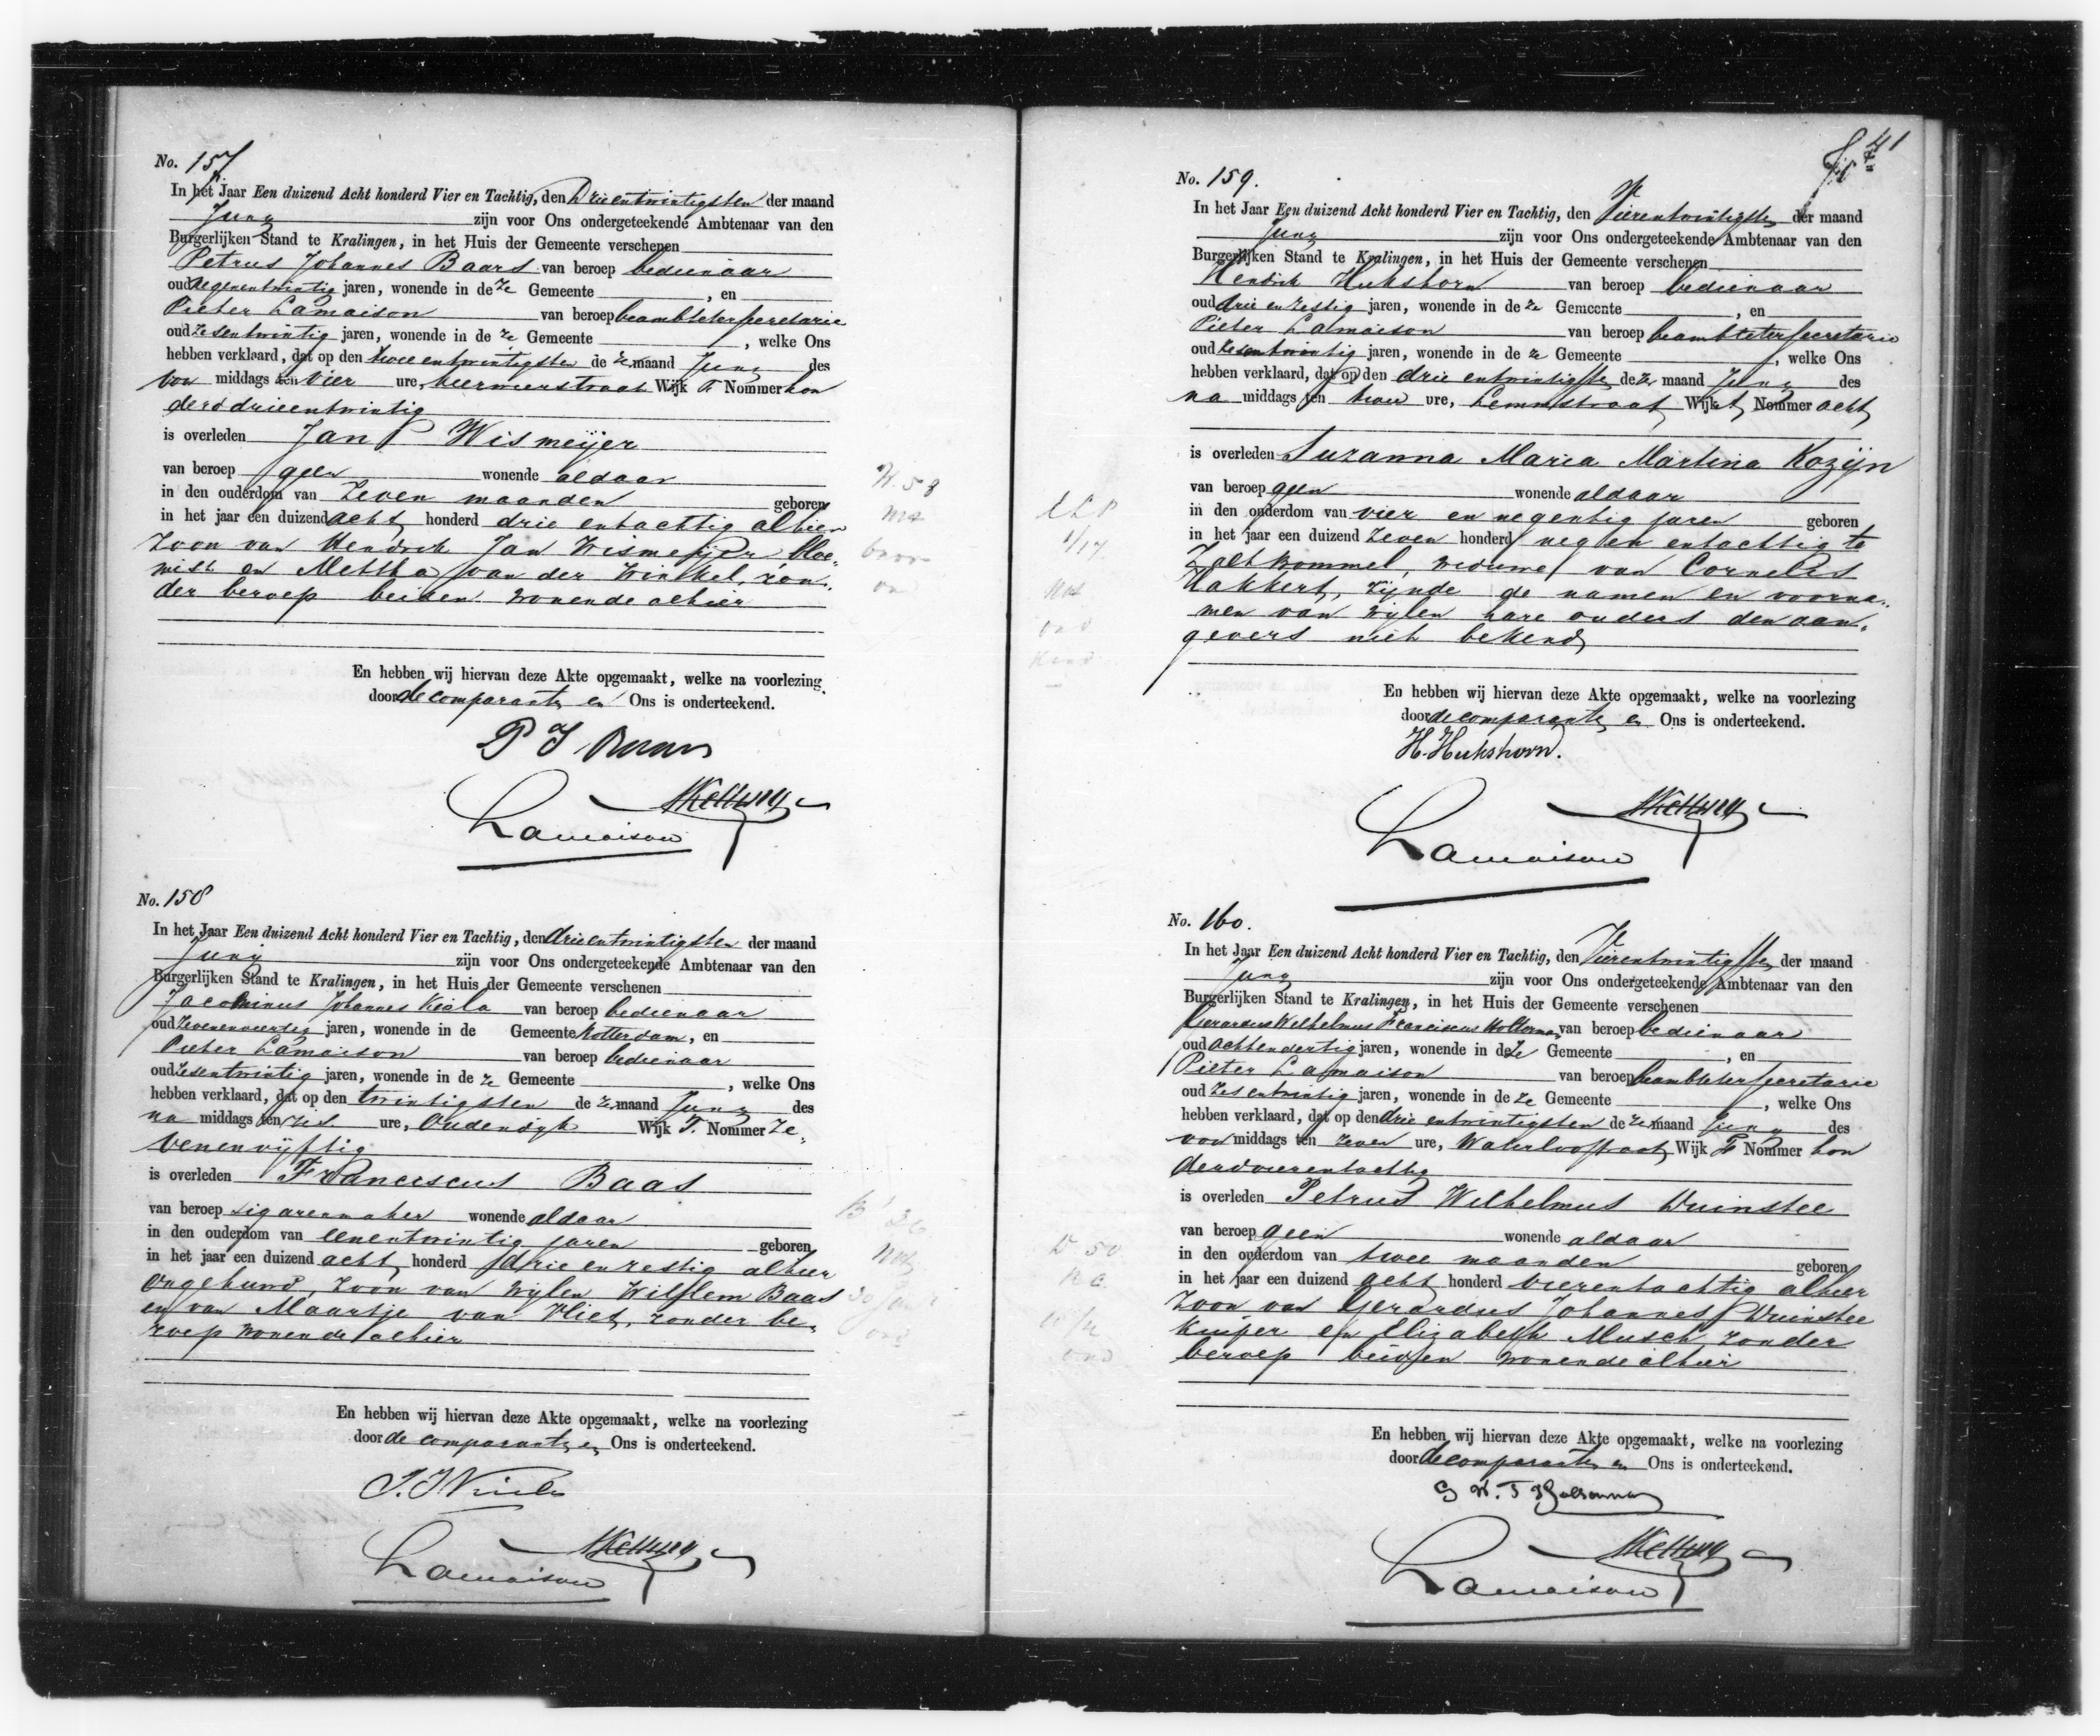 No. 157
In het Jaar Een duizend Acht honderd Vier en Tachtig, den Drieentwintigsten der maand
Juny zijn voor Ons ondergeteekende Ambtenaar van den
Burgerlijken Stand te Kralingen, in het Huis der Gemeente verschenen
Petrus Johannes Baars van beroep bedienaar
oud negenentwintig jaren, wonende in de ze Gemeente , en
Pieter Lamaison van beroep beambte ter secretarie
oud zesentwintig jaren, wonende in de ze Gemeente , welke Ons
hebben verklaard, dat op den twee entwintigsten de ze maand Juny des
voor middags ten vier ure, Wijk F Nommer hon
derd drieentwintig
is overleden Jan P Wismeijer
van beroep geen wonende aldaar
in den ouderdom van zeven maanden geboren
in het jaar een duizend acht honderd drie entachtig alhier
zoon van Hendrik Jan Wismeijer bloe-
mist en Mettha van der Winkel, zon-
der beroep beiden wonende alhier
En hebben wij hiervan deze Akte opgemaakt, welke na voorlezing
door de comparanten en Ons is onderteekend.
P J Baars
Lamaison
No. 158
In het Jaar Een duizend Acht honderd Vier en Tachtig, den drieentwintigsten der maand
Juny zijn voor Ons ondergeteekende Ambtenaar van den
Burgerlijken Stand te Kralingen, in het Huis der Gemeente verschenen
Jacominus Johannes van beroep bedienaar
oud zevenenveertig jaren, wonende in de Gemeente Rotterdam, en
Pieter Lamaison van beroep bedienaar
oud zesentwintig jaren, wonende in de ze Gemeente , welke Ons
hebben verklaard, dat op den twintigsten de ze maand Juny des
na middags ten zes ure, Oudendijk Wijk F. Nommer ze-
venenvijftig
is overleden Franciscus Baas
van beroep sigarenmaker wonende aldaar
in den ouderdom van eenentwintig jaren geboren
in het jaar een duizend acht honderd drie enzestig alhier
ongehuwd, zoon van wijlen Willem Baas
en van Maartje van Vliet, zonder be-
roep wonende alhier
En hebben wij hiervan deze Akte opgemaakt, welke na voorlezing
door de comparanten en Ons is onderteekend.
Lamaison
41
No. 159.
In het Jaar Een duizend Acht honderd Vier en Tachtig, den Vierentwintigsten der maand
Juny zijn voor Ons ondergeteekende Ambtenaar van den
Burgerlijken Stand te Kralingen, in het Huis der Gemeente verschenen
Hendrik Hukshorn van beroep bedienaar
oud drie enzestig jaren, wonende in de ze Gemeente , en
Pieter Lamaison van beroep beambte ter secretarie
oud zesentwintig jaren, wonende in de ze Gemeente , welke Ons
hebben verklaard, dat op den drie entwintigsten de ze maand Juny des
na middags ten twee ure, Wijk Nommer acht
is overleden Suzanna Maria Martina Kozijn
van beroep geen wonende aldaar
in den ouderdom van vier en negentig jaren geboren
in het jaar een duizend zeven honderd negen entachtig te
Zaltbommel, weduwe van Cornelis
Hakkert, zijnde de namen en voorna-
men van wijlen hare ouders den aan-
gevers niet bekend
En hebben wij hiervan deze Akte opgemaakt, welke na voorlezing
door de comparanten en Ons is onderteekend.
H. Hukshorn.
Lamaison
No. 160.
In het Jaar Een duizend Acht honderd Vier en Tachtig, den Vierentwintigsten der maand
Juny zijn voor Ons ondergeteekende Ambtenaar van den
Burgerlijken Stand te Kralingen, in het Huis der Gemeente verschenen
Gerardus Wilhelmus Franciscus Holterman van beroep bedienaar
oud achtendertig jaren, wonende in de ze Gemeente , en
Pieter Lamaison van beroep beambte ter secretarie
oud zes entwintig jaren, wonende in de ze Gemeente , welke Ons
hebben verklaard, dat op den drie entwintigsten de ze maand Juny des
voor middags ten zeven ure, Waterloostraat Wijk F Nommer hon
derdvierentachtig
is overleden Petrus Wilhelmus Duinstee
van beroep geen wonende aldaar
in den ouderdom van twee maanden geboren
in het jaar een duizend acht honderd vierentachtig alhier
zoon van Gerardus Johannes Duinstee
kuiper en Elizabeth Musch, zonder
beroep beiden wonende alhier
En hebben wij hiervan deze Akte opgemaakt, welke na voorlezing
door de comparanten en Ons is onderteekend.
G W. F Holterman
Lamaison